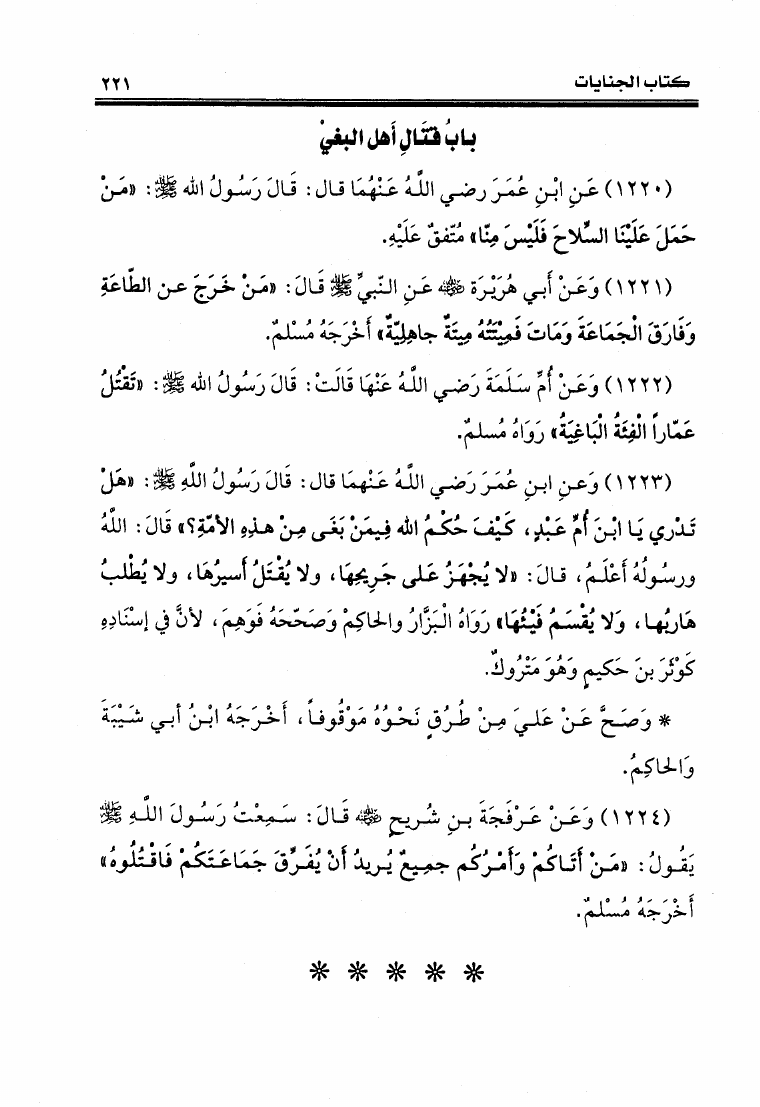 كتاب الجنايات ٢٢١
بابُ قتَالِ أهل البغيْ
(١٢٢٠) عَنِ ابْنِ عُمَرَ رضي اللَّهُ عَنْهُمَا قال: قَالَ رَسُولُ الله ﷺ: «مَنْ
حَمَلَ عَلَيْنَا السِّلاحَ فَلَيْسَ مِنَّا» مُتّفقٌ عَلَيْهِ.
(١٢٢١) وَعَنْ أَبي هُرَيْرَةَ رضي الله عنه عَنِ النّبيِّ ﷺ قَالَ: «مَنْ خَرَجَ عن الطّاعَةِ
وَفَارَقَ الْجَمَاعَةَ وَمَاتَ فَمِيْتَتُهُ مِيتَةٌ جاهِليّةٌ» أَخْرَجَهُ مُسْلمٌ.
(١٢٢٢) وَعَنْ أُمِّ سَلَمَةَ رَضي اللَّهُ عَنْهَا قَالَتْ: قَالَ رَسُولُ الله ﷺ: «تَقْتُلُ
عَمّاراً الْفِئَةُ الْبَاغِيَةُ» رَوَاهُ مُسلمٌ.
(١٢٢٣) وَعنِ ابنِ عُمَرَ رَضي اللَّهُ عَنْهمَا قال: قَالَ رَسُولُ اللَّهِ ﷺ: «هَلْ
تَدْري يَا ابْنَ أُمِّ عَبْدٍ، كَيْفَ حُكْمُ الله فِيمَنْ بَغَى مِنْ هذِهِ الأمّةِ؟» قَالَ: اللَّهُ
ورسُولُهُ أَعْلَمُ، قالَ: «لا يُجْهَزُ على جَرِيحِهَا، ولا يُقْتَلُ أسيرُهَا، ولا يُطْلَبُ
هَاربُها، وَلا يُقْسَمُ فَيْئُهَا» رَوَاهُ الْبَزَّارُ والحَاكِمْ وَصَحّحَهُ فَوَهِمَ، لأنَّ في إسْنَادِهِ
كَوْثَرَ بنَ حَكيمٍ وَهُوَ مَتْرُوكٌ.
* وَصَحَّ عَنْ عَليَ مِنْ طُرُقٍ نَحْوُهُ مَوْقُوفاً، أَخْرَجَهُ ابْنُ أَبي شَيْبَةَ
وَالحَاكِمُ.
(١٢٢٤) وَعَنْ عَرْفَجَةَ بنِ شُريحٍ رضي الله عنه قَالَ: سَمِعْتُ رَسُولَ اللَّهِ ﷺ
يَقُولُ: «مَنْ أَتَاكُمْ وَأَمْرُكُم جميعٌ يُريدُ أَنْ يُفَرِّقَ جَمَاعَتَكُمْ فَاقْتُلُوهُ»
أَخْرَجَهُ مُسْلمٌ.
* * * * *